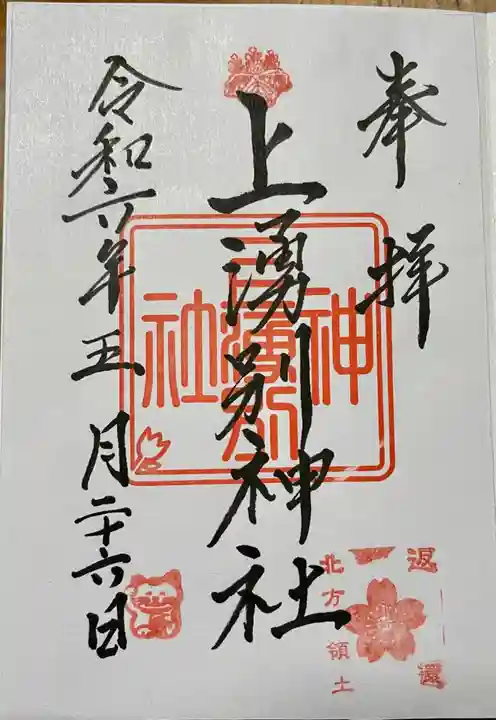 奉拝
上湧別神社
上湧別神社
令和六年五月二十六日
北方領土
返還